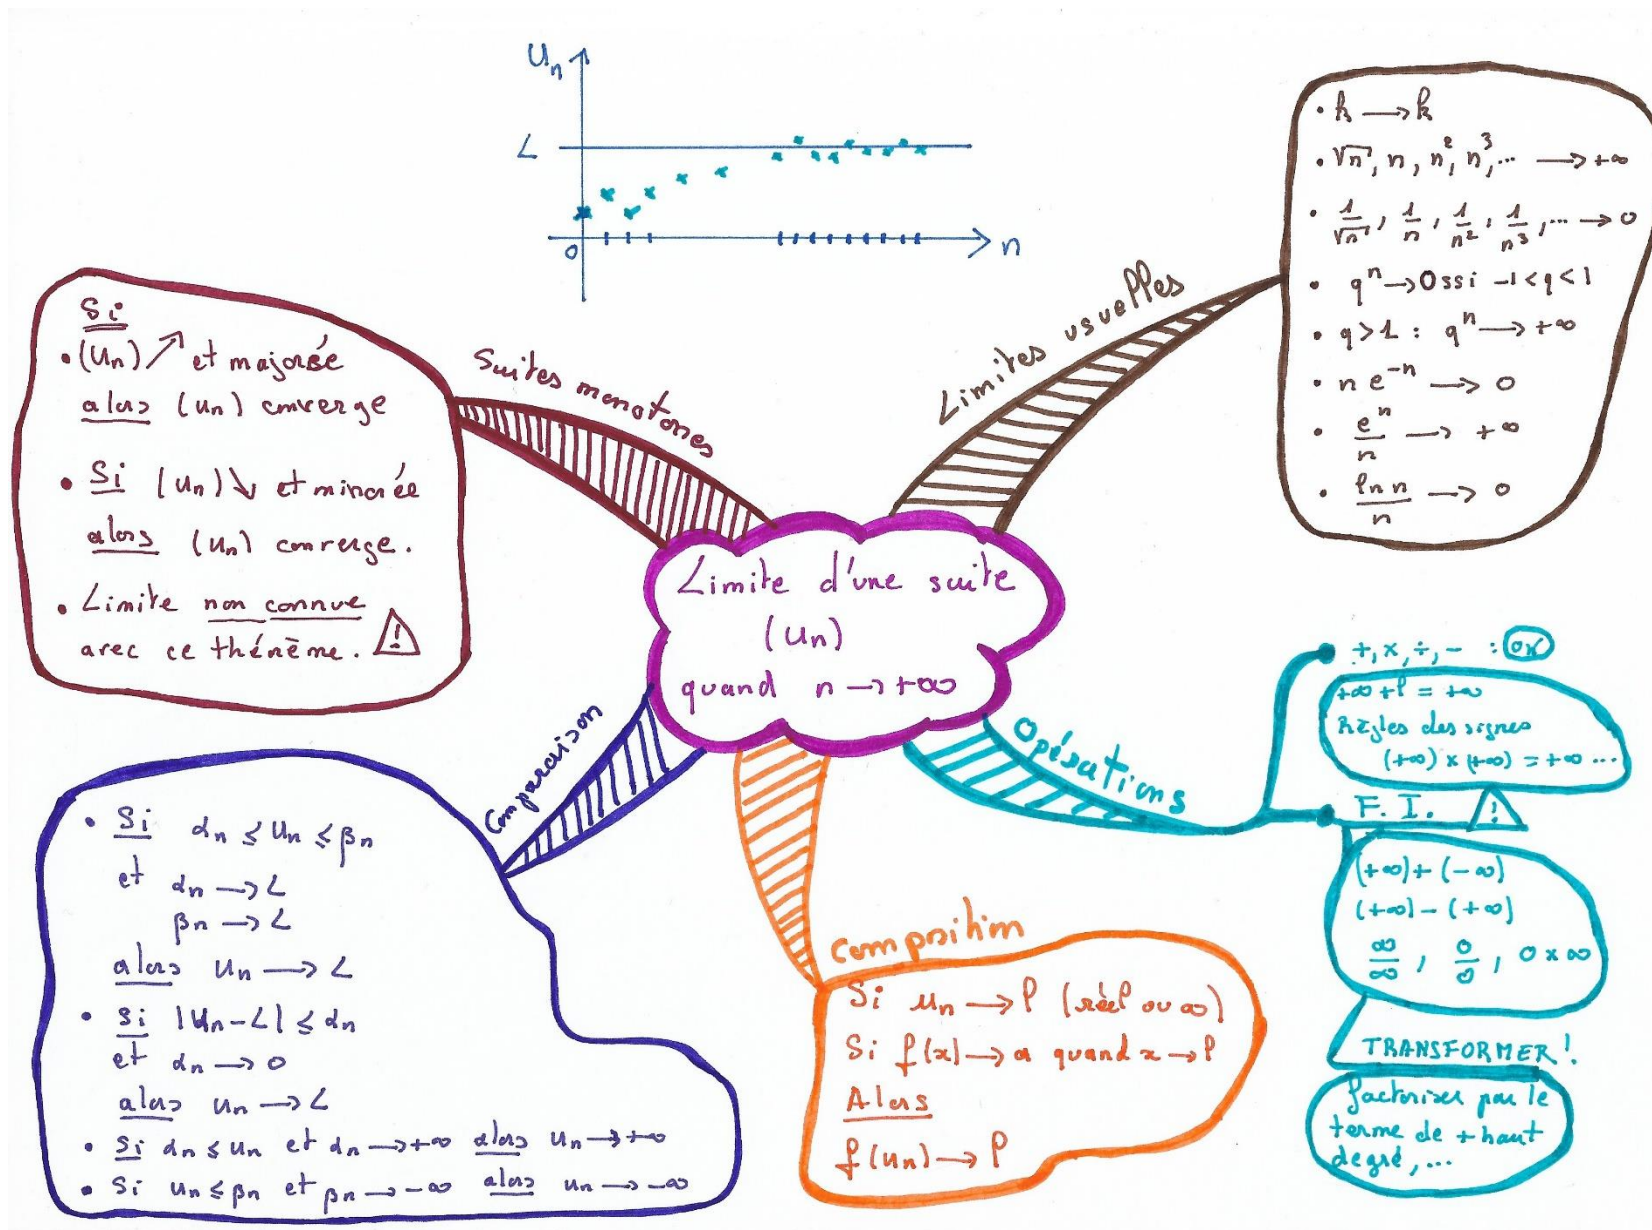 Un
L
0
n
Limite d'une suite
(un)
quand n → +∞
Suites monotones
Si
• (Un) ↗ et majorée
alors (un) converge
• Si (un) ↘ et minorée
alors (un) converge.
• Limite non connue
avec ce théorème. ⚠
Limites usuelles
• k → k
• √n, n, n², n³, ... → +∞
• 1/√n, 1/n, 1/n², 1/n³, ... → 0
• qⁿ → 0 ssi -1 < q < 1
• q > 1 : qⁿ → +∞
• n e⁻ⁿ → 0
• eⁿ/n → +∞
• ln n/n → 0
Comparaison
• Si αn ≤ un ≤ βn
et αn → L
βn → L
alors un → L
• Si |Un - L| ≤ αn
et αn → 0
alors un → L
• Si αn ≤ un et αn → +∞ alors un → +∞
• Si un ≤ βn et βn → -∞ alors un → -∞
Composition
Si un → l (réel ou ∞)
Si f(x) → a quand x → l
Alors
f(un) → l
Opérations
+, ×, ÷, - : OK
+∞ + l = +∞
Règles des signes
(+∞) × (+∞) = +∞ ...
F. I. ⚠
(+∞) + (-∞)
(+∞) - (+∞)
∞/∞, 0/0, 0 × ∞
TRANSFORMER !
factoriser par le
terme de + haut
degré, ...